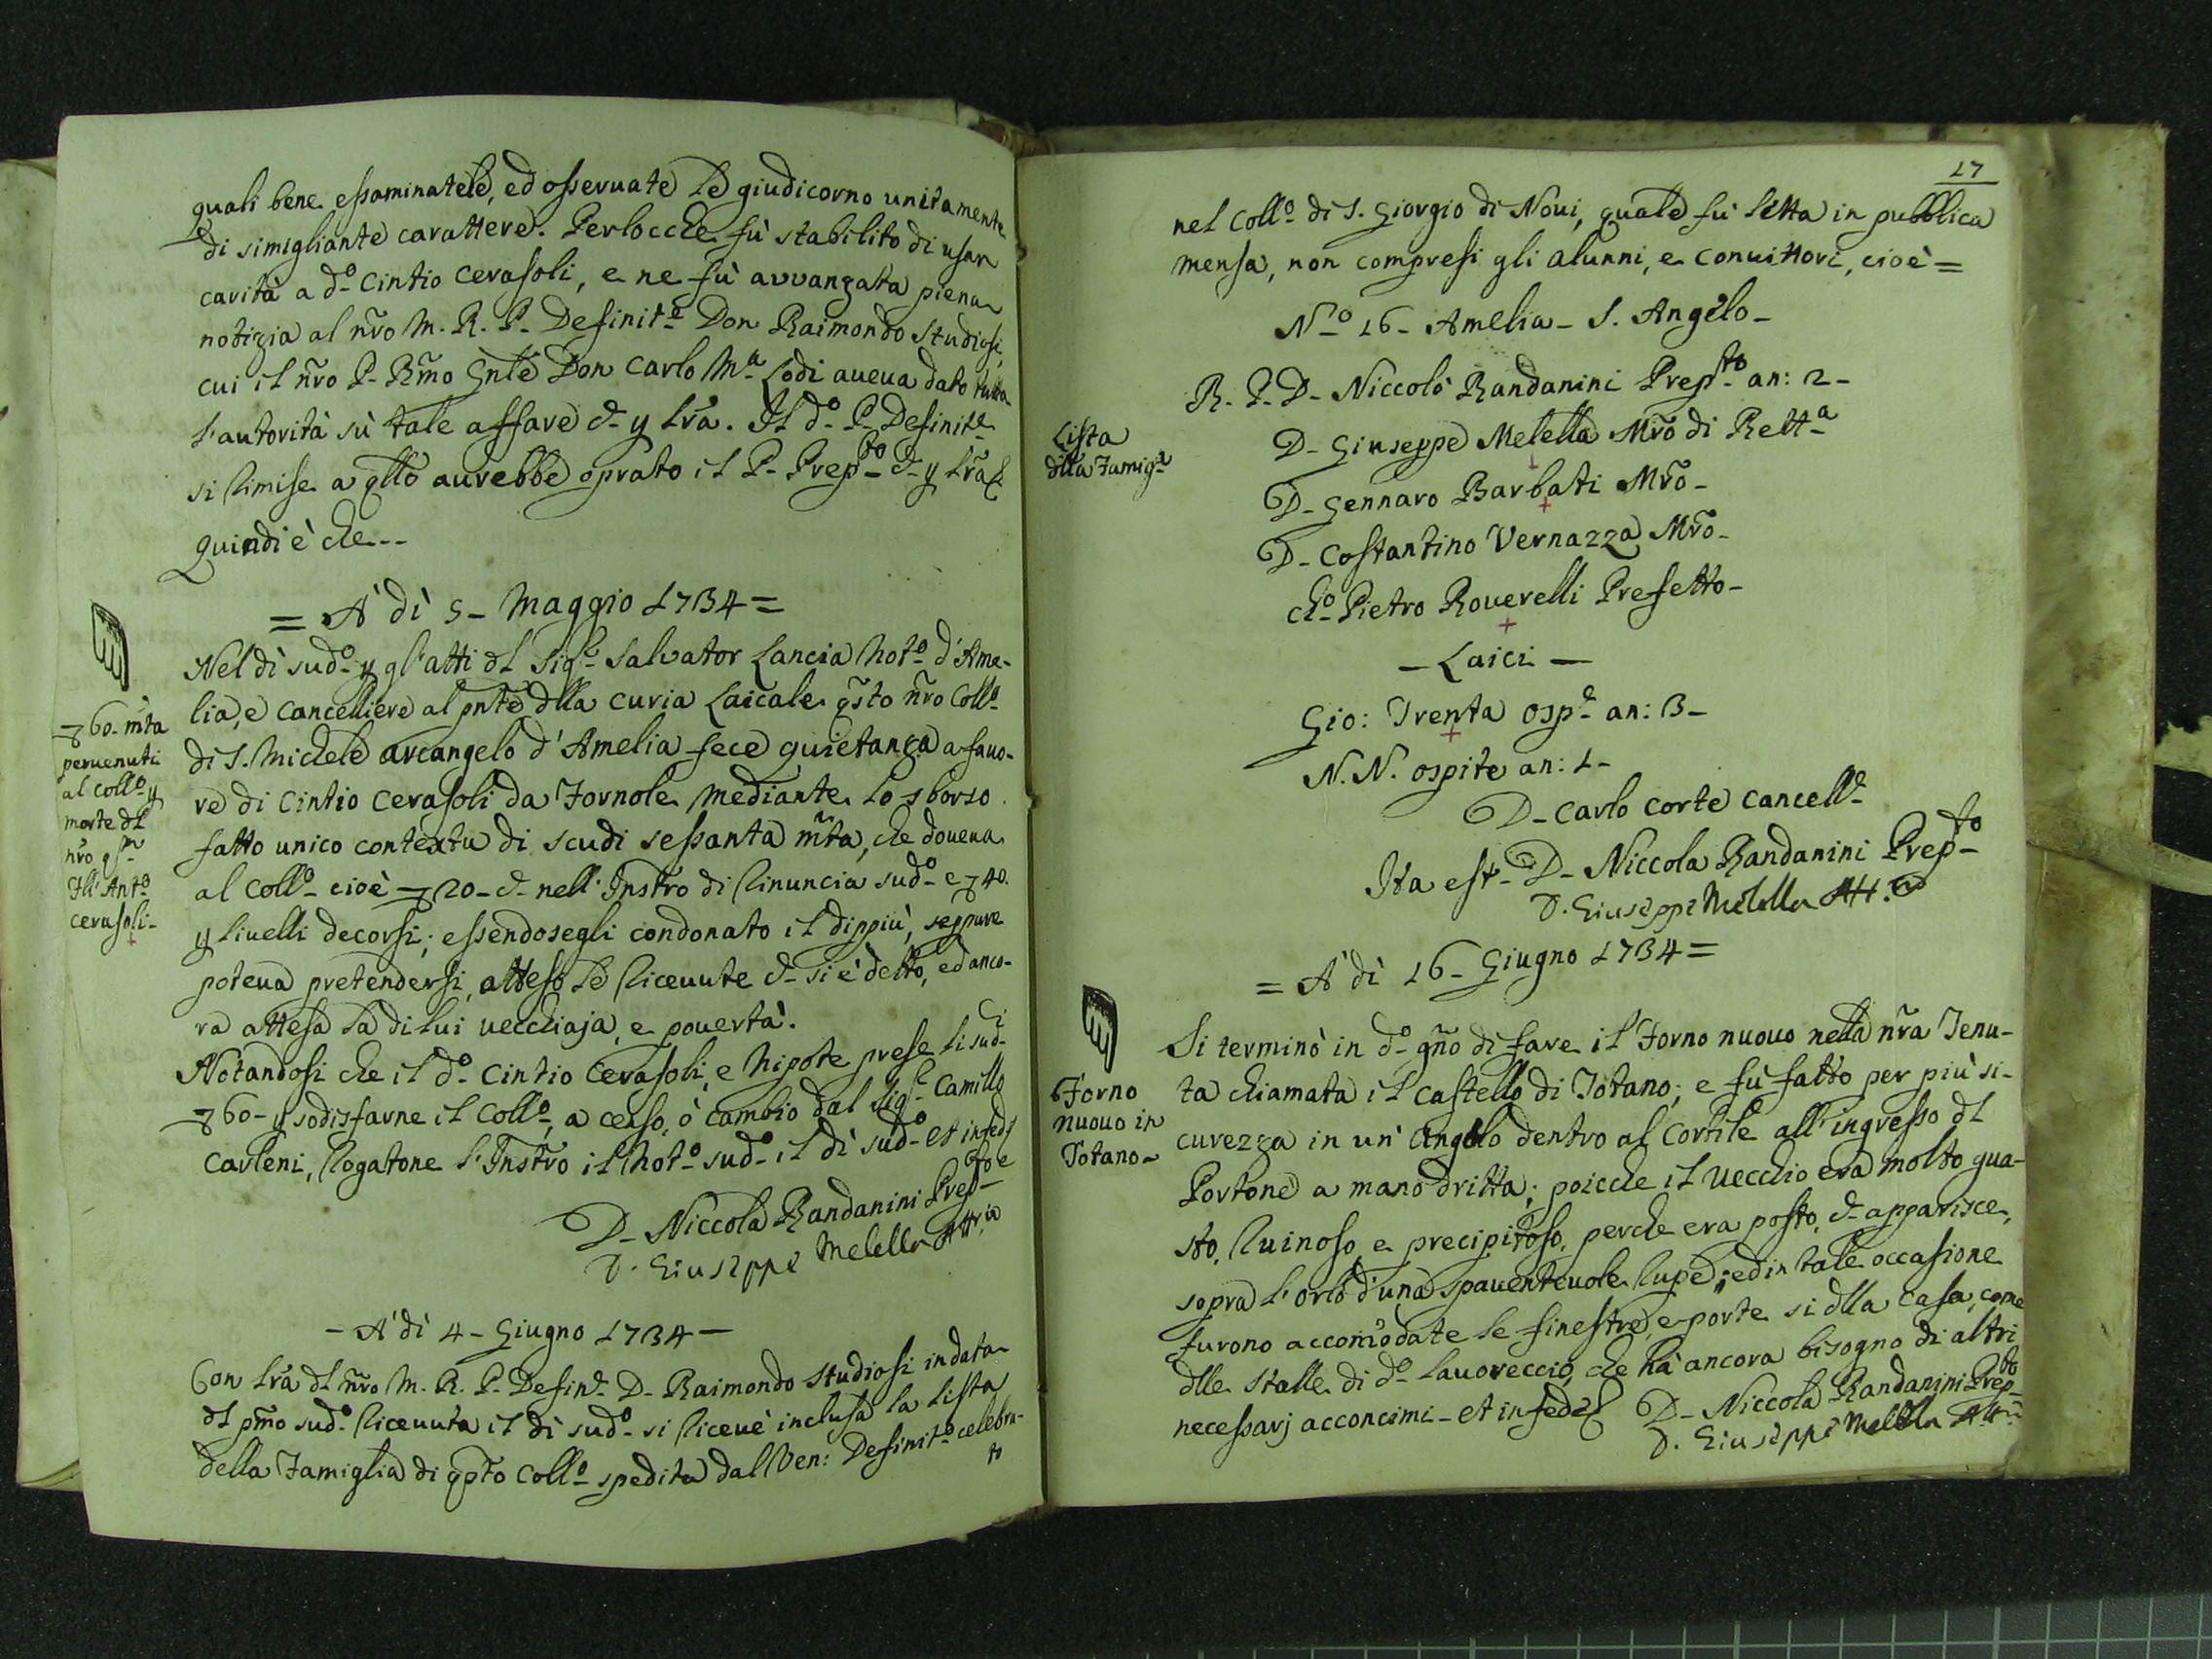 quali bene essaminatele, ed osseruate le giudicorno unitamente
di simigliante carattere. Perlocche fù stabilito di usar
carità a d.º Cintio Cerasoli, e ne fù avvanzata piena
notizia al nr̃o M. R. P. Definit.e Don Raimondo Studiosi,
cui il nr̃o P. Rm̃o Gn̄le Don Carlo M.a Lodi aueua dato tutta
l'autorità sù tale affare
si rimise a qllo aurebbe oprato il P. Prep.to
Quindi è che --
= A' dì 5 - Maggio 1734 =
Nel dì sud.º gl'atti dl Sig.r Salvator Lancia Not.º d'Ame-
lia, e Cancelliere al pnte dlla Curia Laicale qsto nr̃o Coll.º
di S. Michele arcangelo d'Amelia fece quietanza a fauo-
re di Cintio Cerasoli da Fornole, mediante lo sborso
fatto unico contextu di scudi sessanta m̃ta, che doueua
al Coll.º cioè 20 - nell'Instro di rinuncia sud.º e 40.
liuelli decorsi; essendosegli condonato il dippiù, seppure
poteua pretendersi, atteso le riceuute si è detto, ed anco-
ra attesa la di lui uecchiaja, e pouertà.
Notandosi che il d.º Cintio Cerasoli, e Nipote prese li sud.i
60 - sodisfarne il Coll.º, a censo, ò cambio dal Sig.r Camillo
Carleni, rogatone l'Instro il Not.º sud.º il dì sud.º et in fede
D. Niccola Randanini Prep.to
D. Giuseppe Melella Att.rio
60 - m̃ta
peruenuti
al Coll.º
morte dl
nro
Fll' Ant.º
Cerasoli -
- A' dì 4 - Giugno 1734 -
Con lr̃a dl nr̃o M. R. P. Defin.e D. Raimondo Studiosi in data
dl pm̃o sud.º riceuuta il dì sud.º si riceuè inclusa la lista
della Famiglia di qsto Coll.º spedita dal Ven: Definit.º celebra-
to
17
nel Coll.º di S. Giorgio di Noui, quale fù letta in pubblica
mensa, non compresi gli alunni, e conuittori, cioè =
N.º 16 - Amelia - S. Angelo -
R. P. D. Niccolò Randanini Prep.to an: 2 -
Lista
dlla Famig.a
D. Giuseppe Melella Mr̃o di Rett.a
D. Gennaro Barbati Mr̃o -
D. Costantino Vernazza Mr̃o -
Ch.º Pietro Rouerelli Prefetto -
- Laici -
Gio: Trenta osp.e an: 3 -
N. N. ospite an: 1 -
D. Carlo Corte Cancell.e
Ita est - D. Niccola Randanini Prep.to
D. Giuseppe Melella Att.rio
= A' dì 16 - Giugno 1734 =
Si terminò in d.º gño di fare il Forno nuouo nella nr̃a Tenu-
ta chiamata il Castello di Totano; e fù fatto per più si-
curezza in un' angolo dentro al Cortile all'ingresso dl
Portone a mano dritta; poicche il uecchio era molto gua-
sto, ruinoso, e precipitoso, perche era posto, apparisce,
sopra l'orlo d'una spauenteuole rupe; ed in tale occasione
furono accom̃odate le finestre, e porte si dlla casa, come
dlle stalle di d.º lauoreccio, che hà ancora bisogno di altri
necessarj acconcimi - et in fede D. Niccola Randanini Prep.to
D. Giuseppe Melella Att.rio
Forno
nuouo in
Totano -